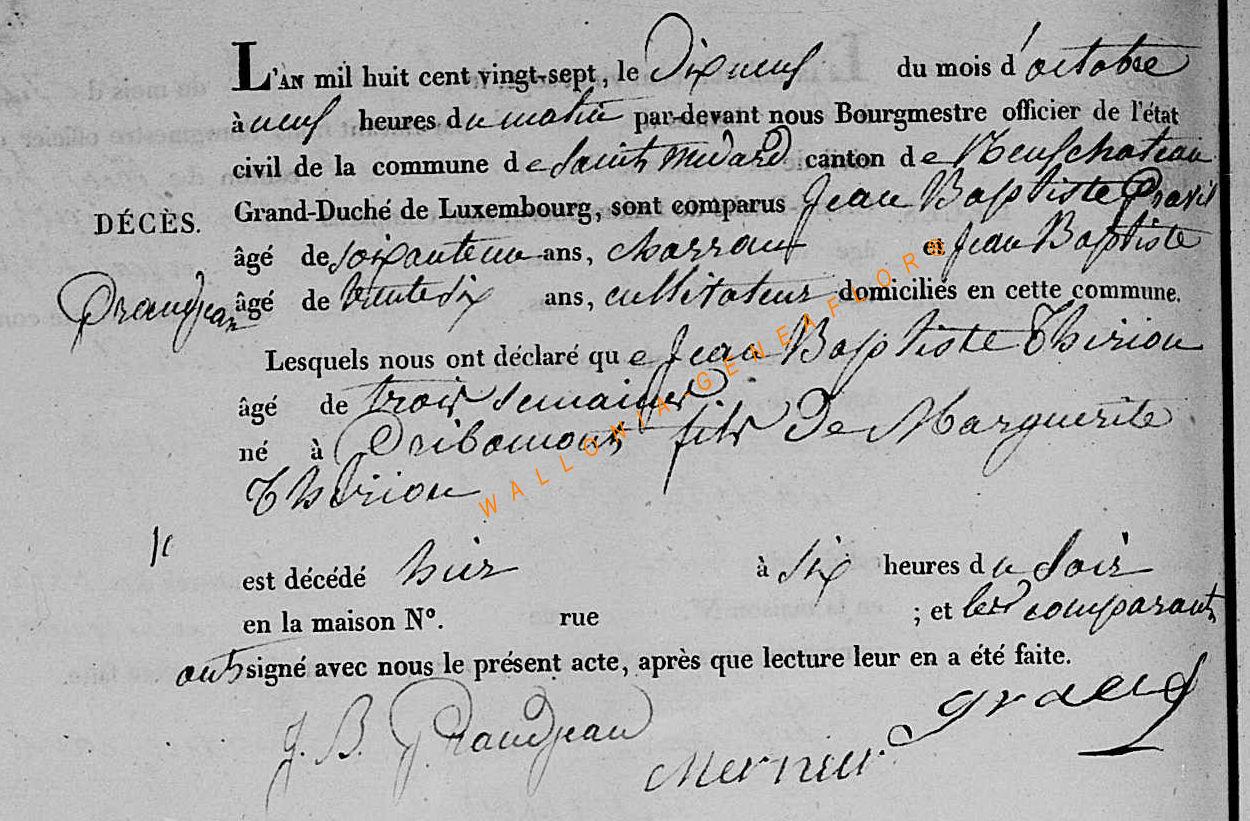 L'AN mil huit cent vingt-sept, le Dix neuf du mois d'octobre
à neuf heures du matin par-devant nous Bourgmestre officier de l'état
civil de la commune de Saint Médard canton de Neufchateau
Grand-Duché de Luxembourg, sont comparus Jean Baptiste
DÉCÈS.
âgé de soixante un ans, charron et Jean Baptiste
Grandjean âgé de trente six ans, cultivateur domiciliés en cette commune.
Lesquels nous ont déclaré que Jean Baptiste Thirion
âgé de trois semaines
né à Gribomont fils de Marguerite
Thirion
est décédé hier à six heures du soir
en la maison N°. rue ; et les comparants
ont signé avec nous le présent acte, après que lecture leur en a été faite.
J. B. Grandjean
Mernier
WALLONIA-GENEAFLORE